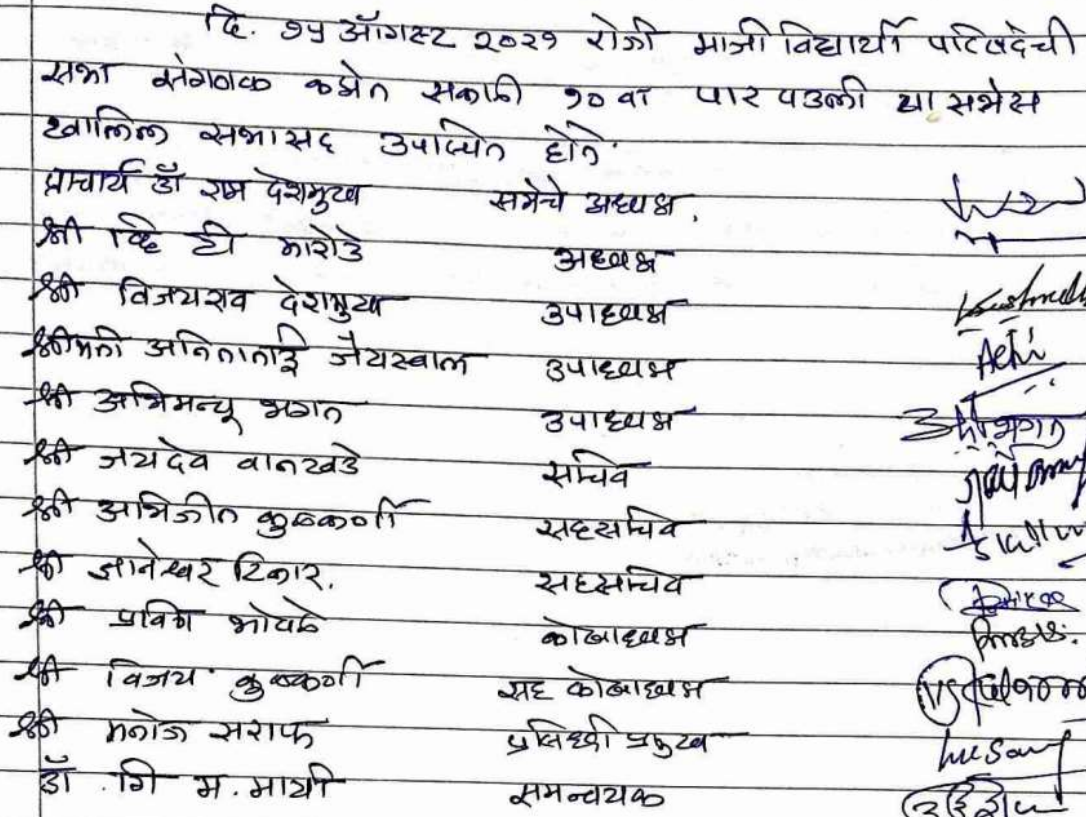 दि. १५ ऑगस्ट २०२१ रोजी माजी विद्यार्थी परिषदेची
सभा संगणक कक्षेत सकाळी १० वा पार पडली या सभेस
खालिल सभासद उपस्थित होते.
प्राचार्य डॉ राम देशमुख सभेचे अध्यक्ष.
श्री व्हि टी मारोडे अध्यक्ष
श्री विजयराव देशमुख उपाध्यक्ष
श्रीमती अनिताताई जैयस्वाल उपाध्यक्ष
श्री अभिमन्यू भगत उपाध्यक्ष
श्री जयदेव वानखडे सचिव
श्री अभिजीत कुळकर्णी सहसचिव
श्री ज्ञानेश्वर टिकार. सहसचिव
श्री प्रविण भोपळे कोषाध्यक्ष
श्री विजय कुळकर्णी सह कोषाध्यक्ष
श्री मनोज सराफ प्रसिध्दी प्रमुख
डॉ. गि म. मायी समन्वयक